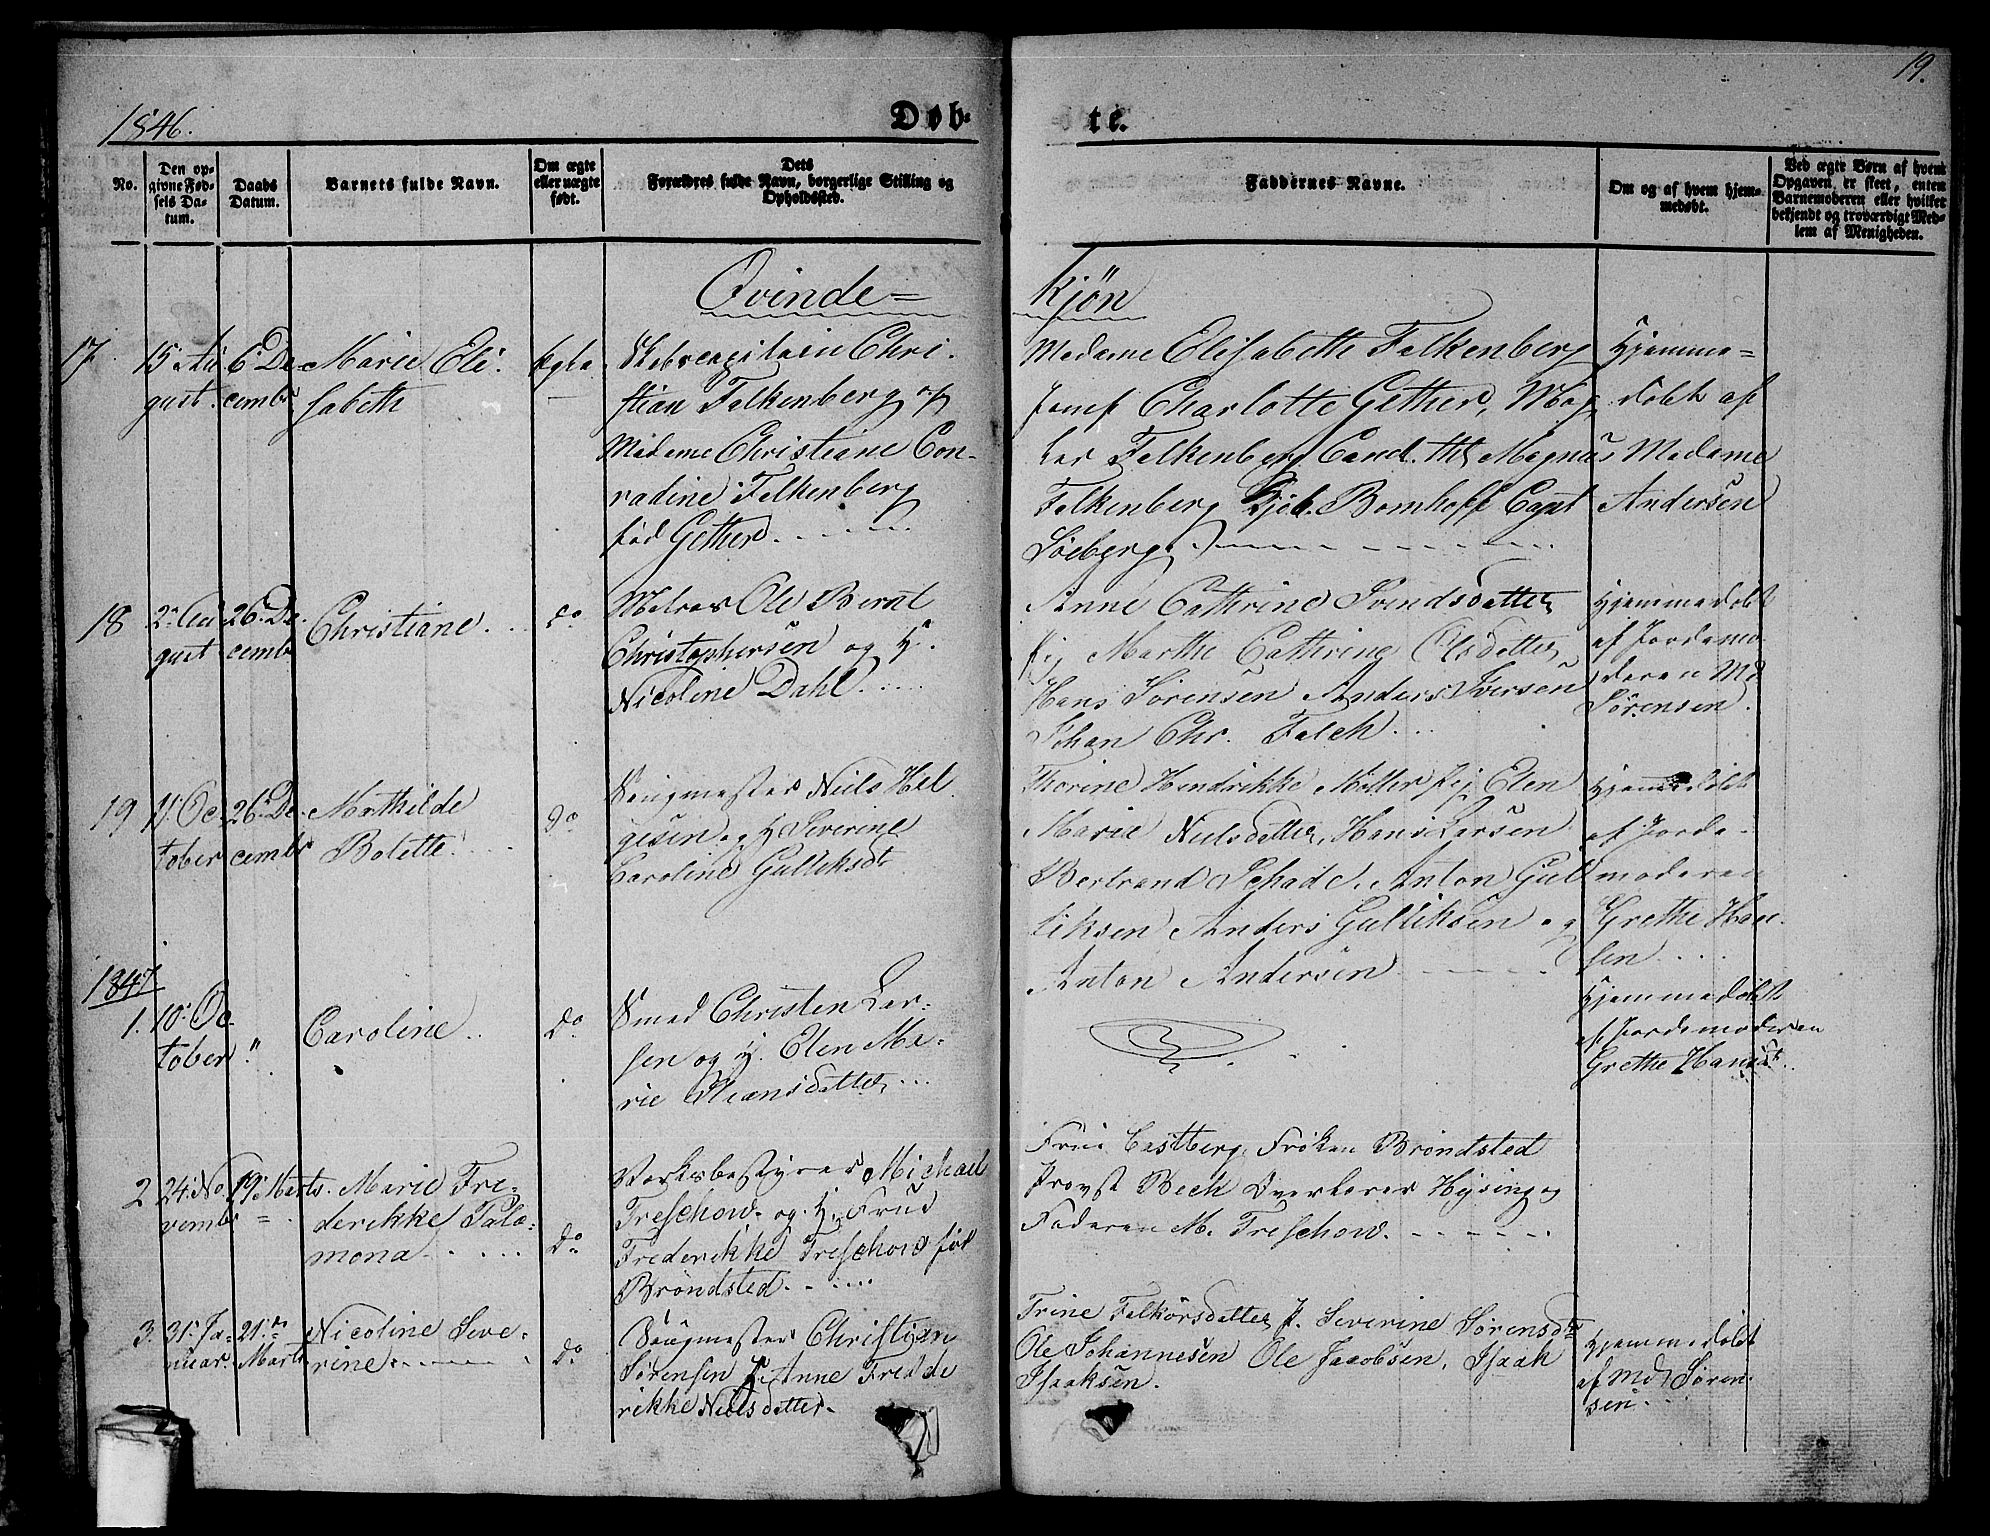 19.
1846.
Døb-
te.
No.
Den op-
givne Fød-
sels Da-
tum.
Daabs
Datum.
Barnets fulde Navn.
Om ægte
eller uægte
født.
Dets
Forældres fulde Navn, borgerlige Stilling og
Opholdssted.
Faddernes Navne.
Om og af hvem hjem-
medøbt.
Ved ægte Børn af hvem
Opgaven er skeet, enten
Barnemoderen eller hvilket
bekjendt og troværdigt Med-
lem af Menigheden.
Qvinde=
Kjön
17.
15 Au
gust.
6 De-
cembr
Marie Eli-
sabeth
Ægte
Skibscapitain Chri-
stian Falkenberg og
Madame Christiane Con-
radine Falkenberg
född Gether
Madame Elisabeth Falkenberg
Jomf Charlotte Gether, Mag
Falkenberg Cand. Magnus
Falkenberg Kjöb. Bomhoff Capt
Söeberg
Hjemme=
döbt af
Madame
Andersen
18
2. Au
gust
26. De-
cembr
Christiane
do
Matros Ole Bernt
Christophersen og H.
Nicoline Dahl
Anne Cathrine Svendsdatter
pig Marthe Cathrine Olsdatter
Hans Sörensen Anders Iversen
Johan Chr. Falch
Hjemmedöbt
af Jordemo-
deren Md
Sörensen.
19
11. Oc-
tober
26. De-
cembr
Mathilde
Bolette.
Do
Saugmester Niels Hel-
gesen og H Severine
Caroline Gulliksdt
Thorine Hendrikke Möller pig Elen
Marie Nielsdatter, Hans Larsen
Bertrand Schade, Anton Gul
liksen Anders Gulliksen og
Anton Andersen
Hjemmedöbt
af Jorde-
moderen
Grethe Han
sen
1847
1.
10. Oc-
tober
"
Caroline
Do
Smed Christen Lar-
sen og H. Elen Ma-
rie Hansdatter
Hjemmedöbt
af Jordemoderen
Grethe Hansdt
2
24. No
vembr
19. Marts.
=
Marie Fre-
derikke Palæ-
mona
Do
Værksbestyrer Michael
Treschow og H. Frue
Frederikke Treschow föd
Bröndsted
Frue Castberg, Fröken Bröndsted
Provst Bech Overlærer Hysing og
Faderen M. Treschow.
3.
31. Ja-
nuar.
21.de
Marts
Nicoline Seve-
rine
Do
Saugmester Christian
Sörensen H. Anne Frede
rikke Nielsdatter.
Trine Falkorsdatter, P. Severine Sörensdtr
Ole Johannesen Ole Jacobsen, Isaak
Isaaksen.
Hjemmedöbt
af Md Sören-
sen.